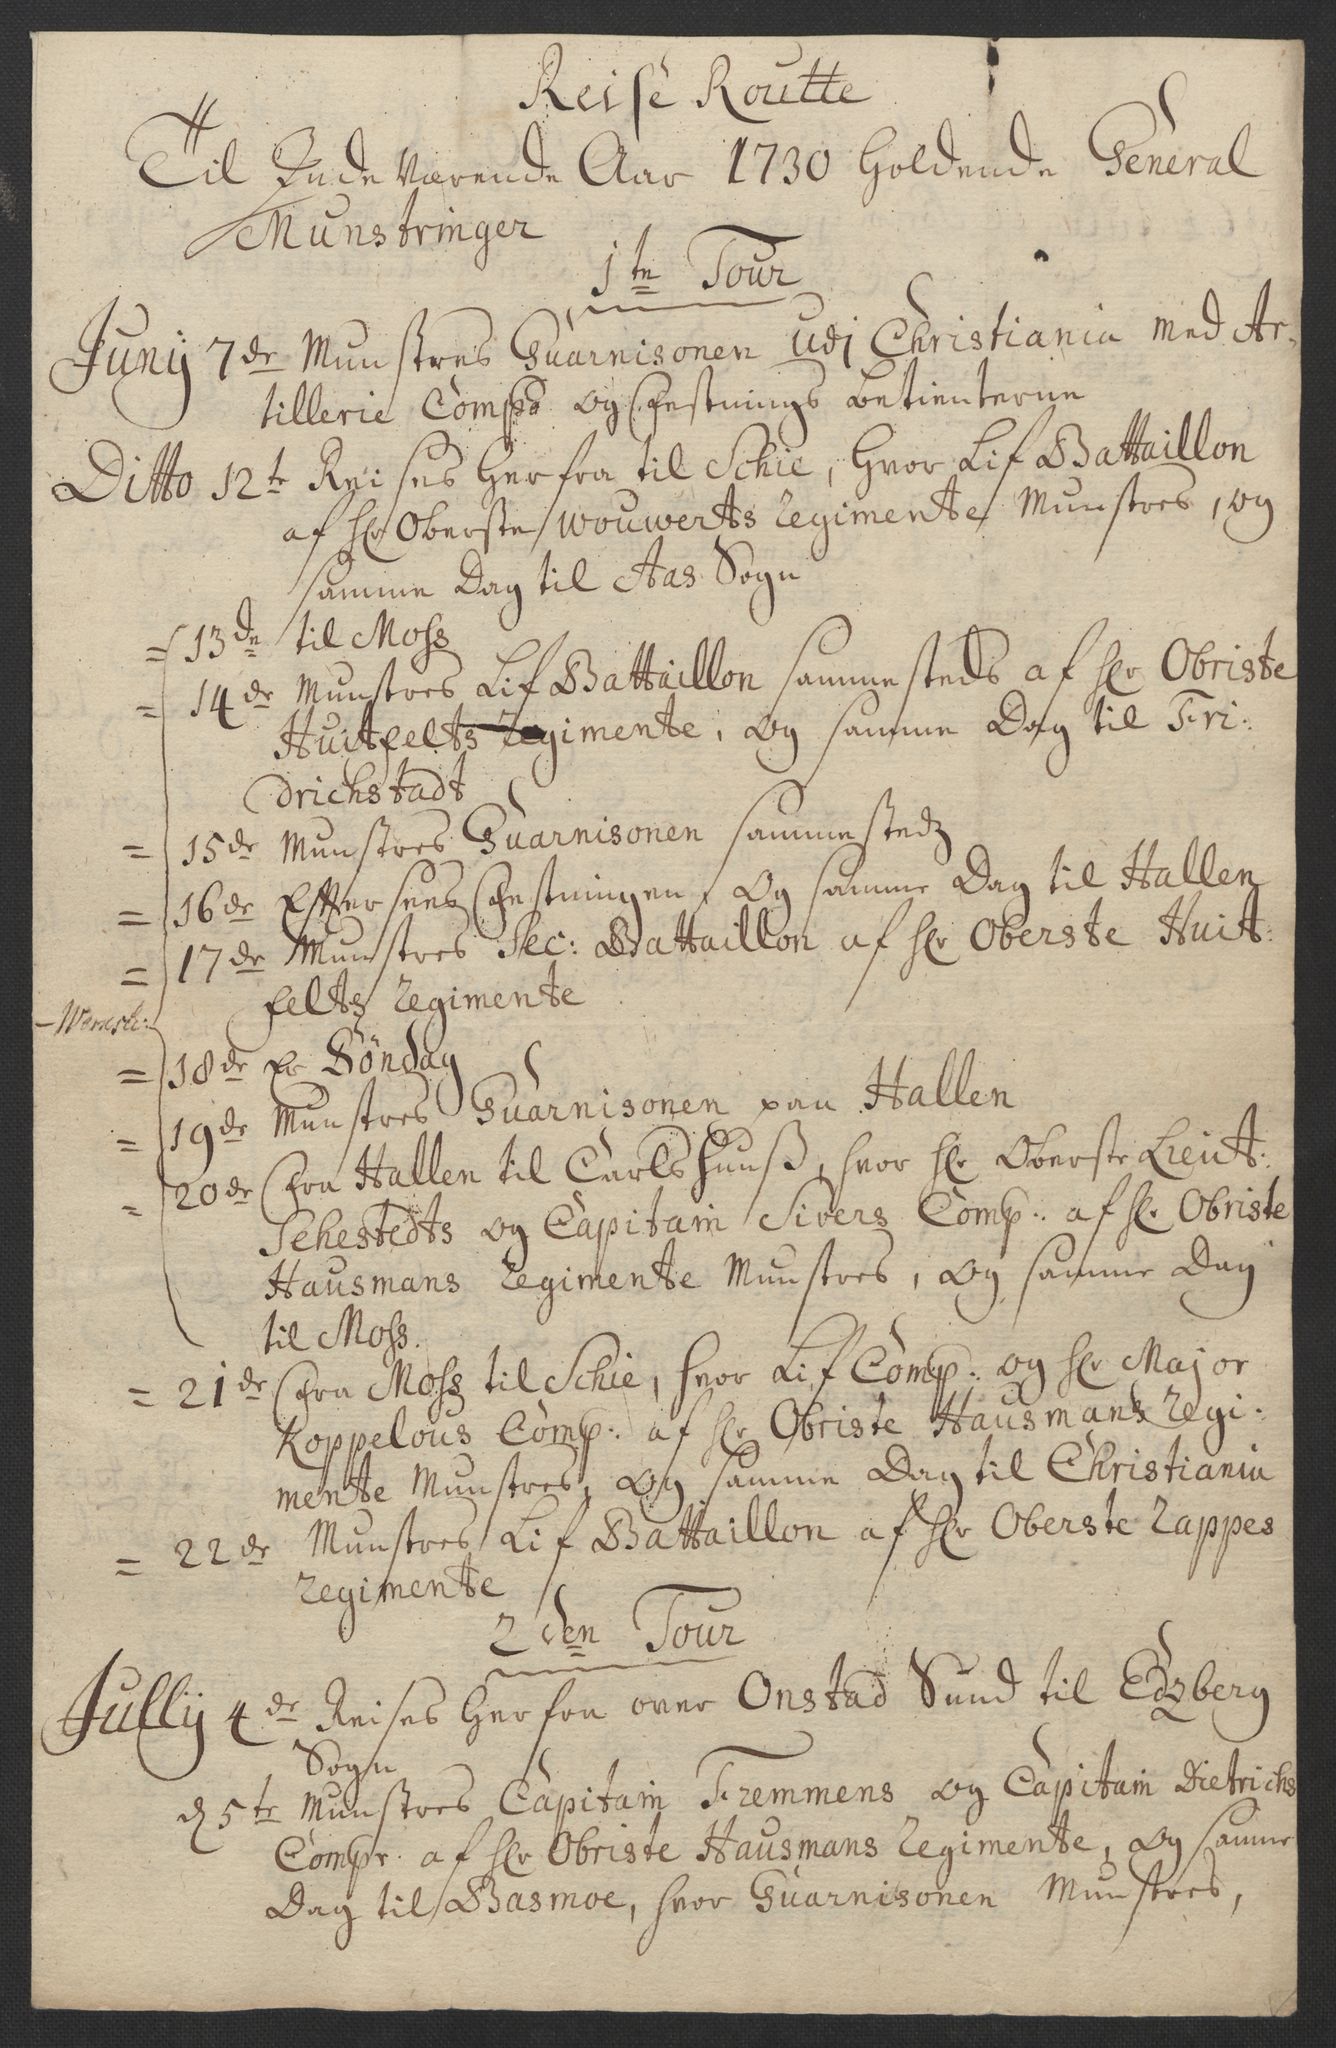 Reise Routte
Til Inde Værende Aar 1730 holdende General
Munstringer
1te Tour
Junij 7de Munstres Guarnisonen udj Christiania med Ar-
tillerie Comp: og Festnings betienterne
Ditto 12te Reises herfra til Schie, hvor Lif Battaillon
af Hr Oberste Wouwerts Regimente Munstres, og
samme Dag til Aas Sogn
= 13de til Moss
= 14de Munstres Lif Battaillon sammesteds af Hr Obriste
Huitfelts Regimente, og samme Dag til Fri:
drichstadt
= 15de Munstres Guarnisonen sammestedz
= 16de Efftersees Festningen, og samme Dag til Hallen
= 17de Munstres Sec: Battaillon af Hr Oberste Huit:
feltz Regimente
= 18de er Söndag
= 19de Munstres Guarnisonen paa Hallen
= 20de fra Hallen til Carlshuuss, hvor Hr Oberste Lieut:
Sehestedts og Capitain Sivers Comp: af Hr Obriste
Hausmans Regimente Munstres, og samme Dag
til Moss.
= 21de fra Moss til Schie, hvor Lif Comp: og Hr Major
Koppelous Comp: af Hr Obriste Hausmans Regi:
mente Munstres, og samme Dag til Christiania
= 22de Munstres Lif Battaillon af Hr Oberste Rappes
Regimente
2den Tour
Jullij 4de Reises herfra over Onstad Sund til Edzberg
Sogn
d 5te Munstres Capitain Fremmens og Capitain Dietrichs
Compr. af Hr Obriste Hausmans Regimente, og samme
Dag til Basmoe, hvor Guarnisonen Munstres,